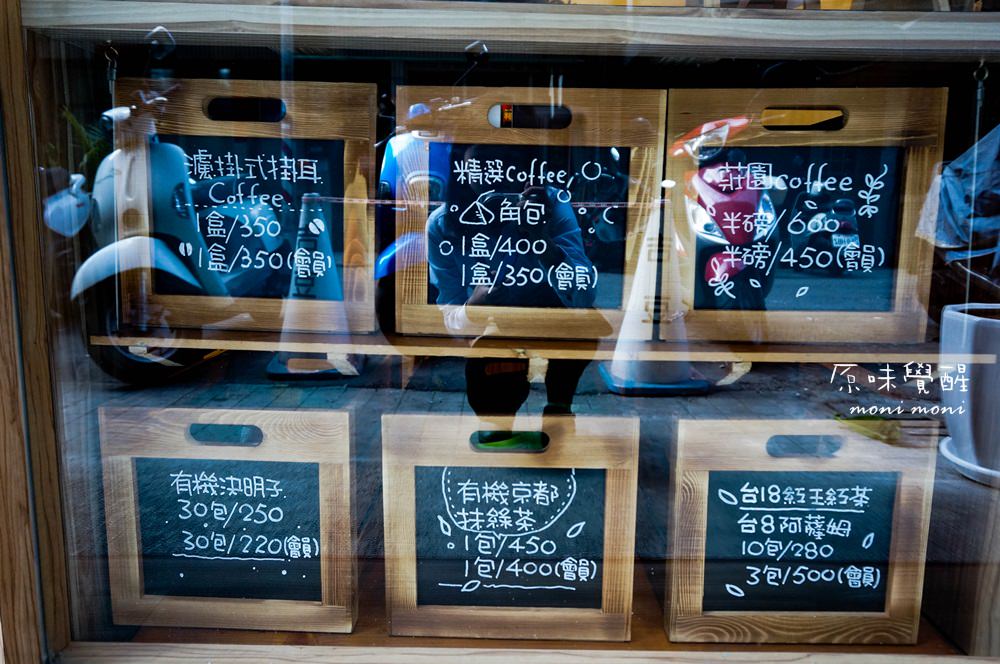 濾掛式掛耳
Coffee
1盒/350
1盒/350(會員)
精選Coffee
角包
1盒/400
1盒/350(會員)
莊園coffee
半磅/600
半磅/450(會員)
原味覺醒
moni moni
有機決明子
30包/250
30包/220(會員)
有機京都
抹綠茶
1包/450
1包/400(會員)
台18紅玉紅茶
台8阿薩姆
10包/280
3包/500(會員)